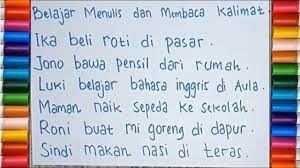 Belajar Menulis dan Membaca Kalimat.
Ika beli roti di pasar.
Jono bawa pensil dari rumah.
Luki belajar bahasa inggris di Aula.
Maman naik sepeda ke sekolah.
Roni buat mi goreng di dapur.
Sindi makan nasi di teras.